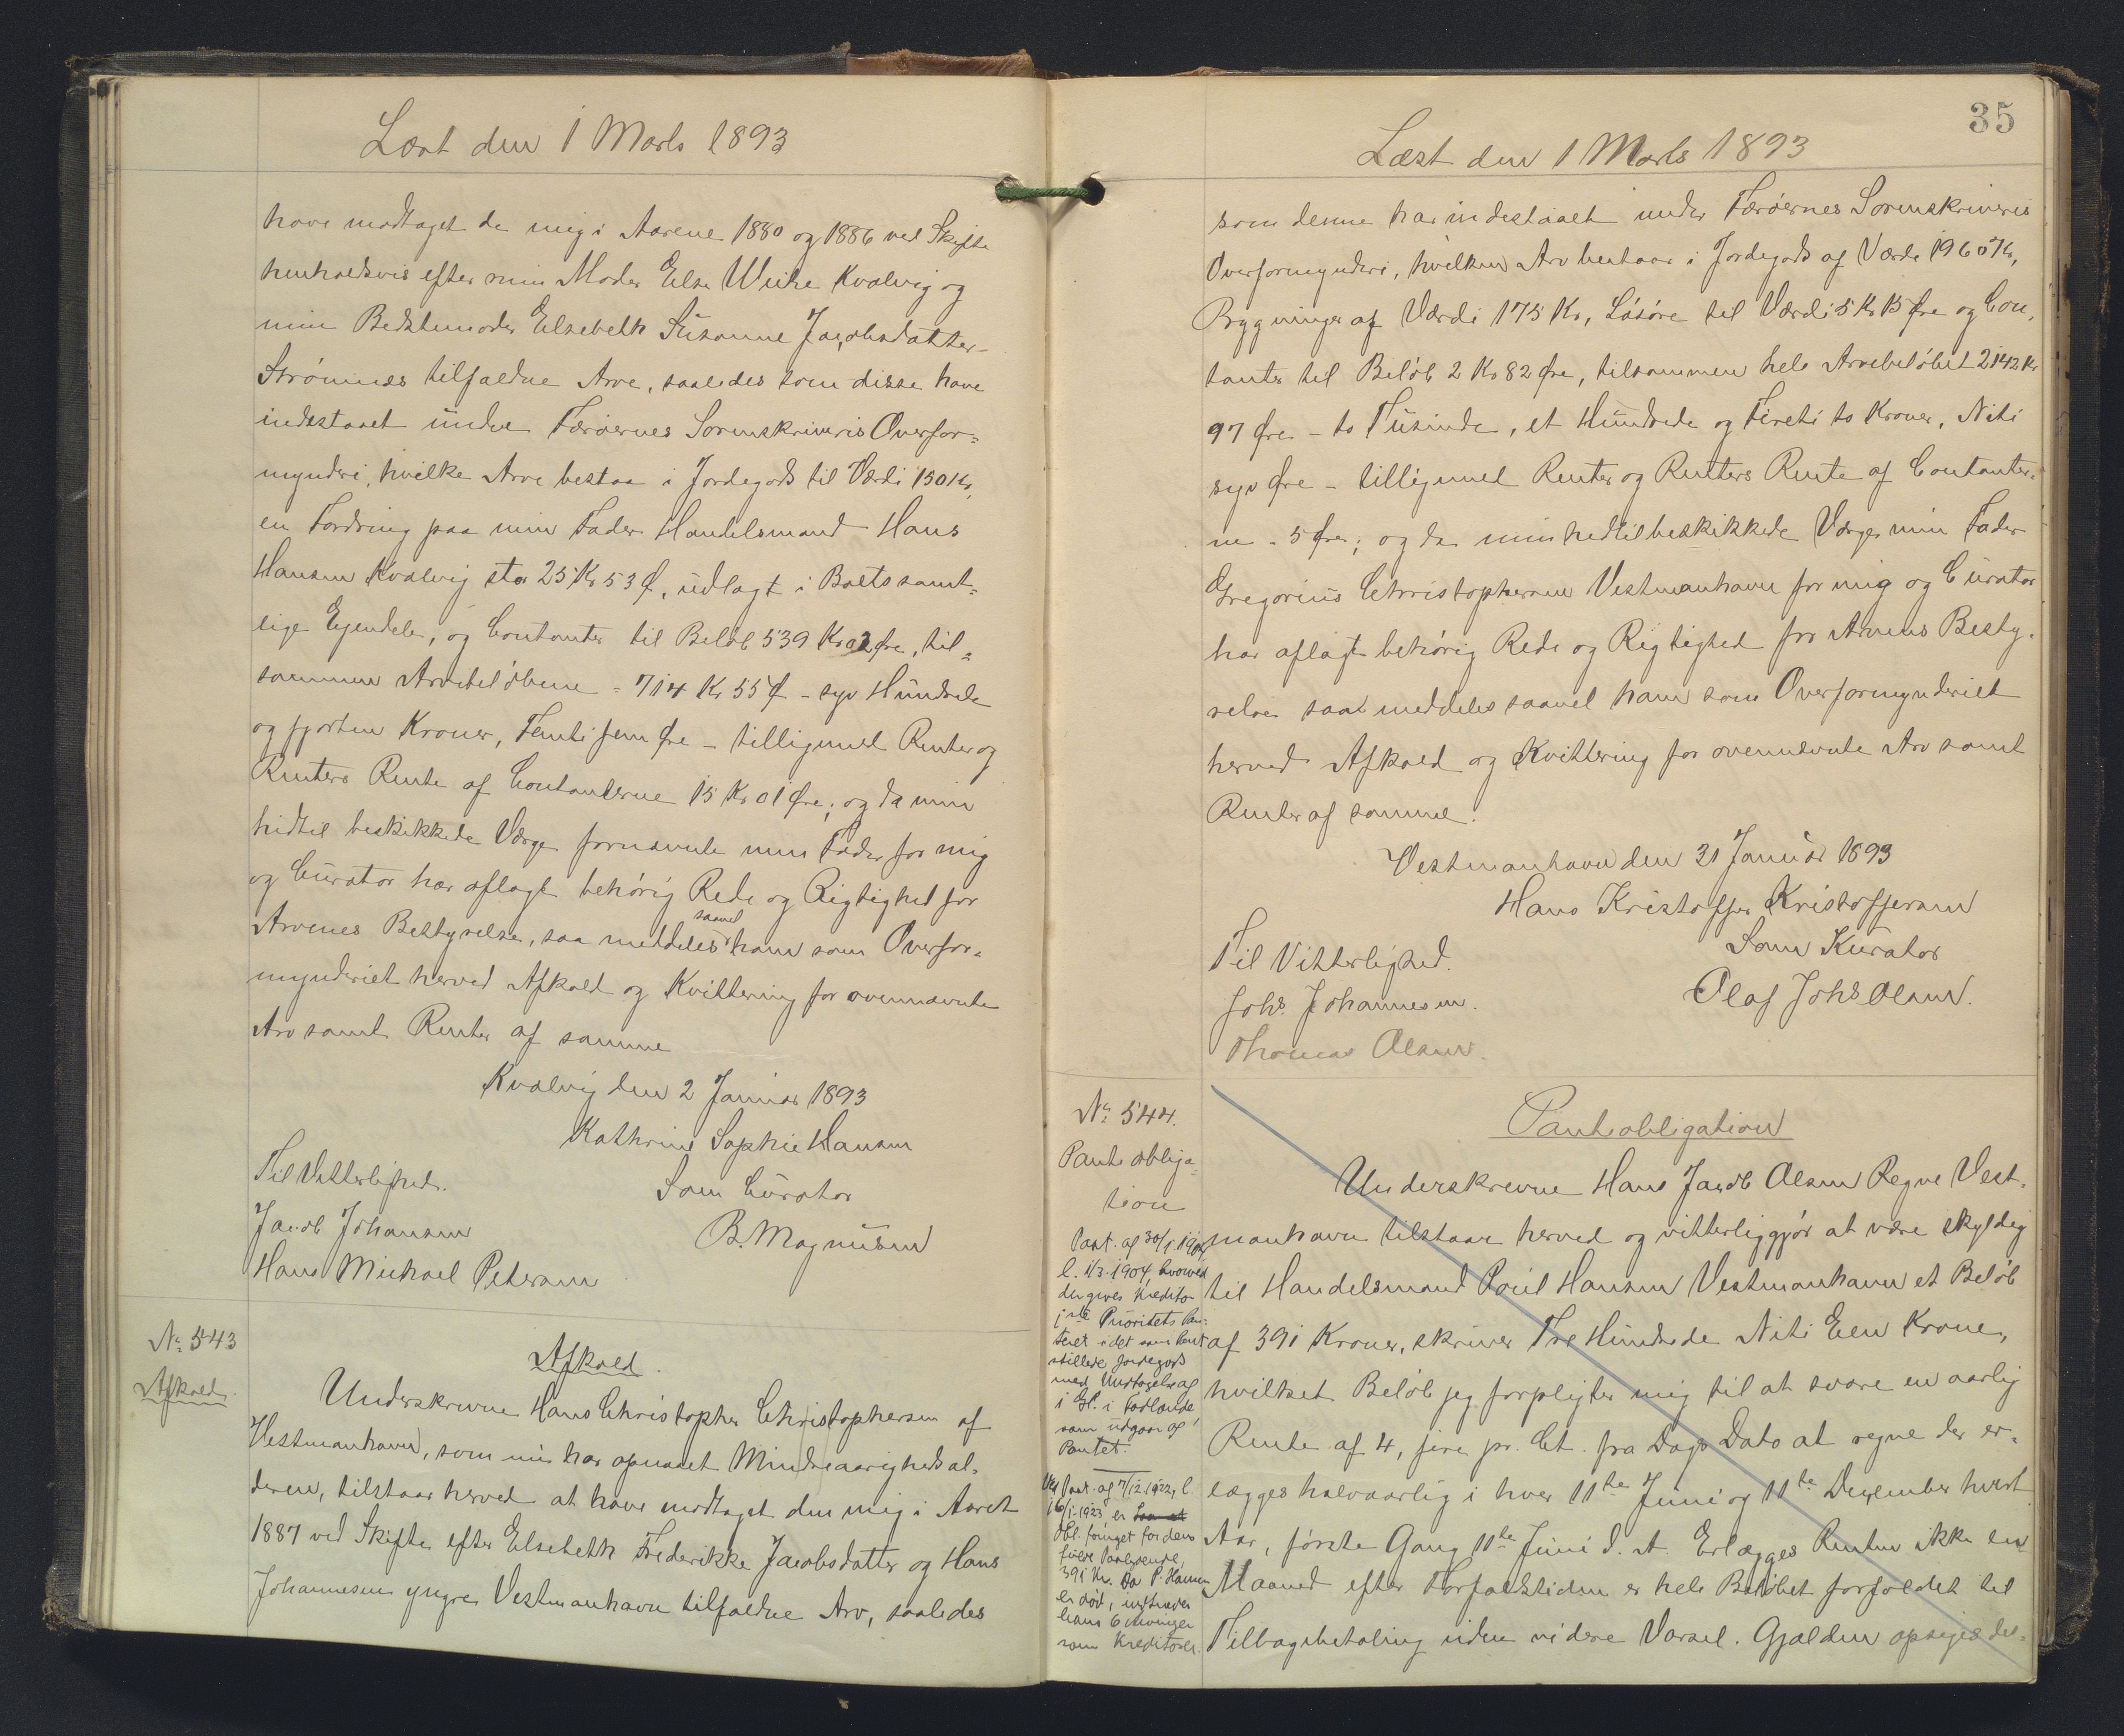 Læst den 1 Marts 1893
have modtaget de mig i Aarene 1880 og 1886 ved Skifte
henholdsvis efter min Moder Else Kvalvig og
min Bedstemoder Elsebeth Susanne Jacobsdatter
Strömnæs tilfaldne Arve, saaledes som disse have
indestaaet under Færøernes Sorenskriveris Overfor-
mynderi, hvilke Arve bestaa i Jordegods til Værdi 150 Kr,
en Fordring paa min Fader Handelsmand Hans
Hansen Kvalvig stor 25 Kr 53 Ø, udlagt i Boets samt-
lige Ejendele, og Contanter til Beløb 539 Kr 02 Øre, til-
sammen Arvebeløbene = 714 Kr 55 Ø - syv Hundrede
og fjorten Kroner, Femti fem Øre - tilligemed Renter og
Renters Rente af Contanterne 15 Kr 01 Øre; og da min
hidtil beskikkede Værge fornævnte min Fader for mig
og Curator har aflagt behörig Rede og Rigtighed for
Arvenes Bestyrelse, saa meddeles saavel ham som Overfor-
mynderiet herved Afkald og Kvittering for ovennævnte
Arv samt Renter af samme
Kvalvig den 2 Januar 1893
Kathrine Sophie Hansen
Til Vitterlighed.
Som Curator
Jacob Johansen
B. Magnusen
Hans Michael Petersen
No 543
Afkald.
Afkald.
Underskrevne Hans Christopher Christophersen af
Vestmanhavn, som nu har opnaaet Mindreaarighedsal-
deren, tilstaar herved at have modtaget den mig i Aaret
1887 ved Skifte efter Elsebeth Frederikke Jacobsdatter og Hans
Johannesen yngre Vestmanhavn tilfaldne Arv, saaledes
35
Læst den 1 Marts 1893
som denne har indestaaet under Færøernes Sorenskriveris
Overformynderi, hvilken Arv bestaar i Jordegods af Værdi 1960 Kr,
Bygninger af Værdi 175 Kr, Løsøre til Værdi 5 Kr 15 Øre og Con-
tanter til Beløb 2 Kr 82 Øre, tilsammen hele Arvebeløbet 2142 Kr
97 Øre - to Tusinde, et Hundrede og Fireti to Kroner, Niti
syv Øre - tilligemed Renter og Renters Rente af Contanter-
ne - 5 Øre; og da min hidtil beskikkede Værge min Fader
Gregorius Christophersen Vestmanhavn for mig og Curator
har aflagt behörig Rede og Rigtighed for Arvens Besty-
relse saa meddeles saavel ham som Overformynderiet
herved Afkald og Kvittering for ovennævnte Arv samt
Renter af samme.
Vestmanhavn den 31 Januar 1893
Hans Kristoffer Kristoffersen
Til Vitterlighed.
Som Kurator
Johs. Johannesen.
Olaf Johs Olsen.
Thomas Olsen.
No 544.
Pantobliga-
tion
Pantobligation
Underskrevne Hans Jacob Olsen Regne Vest-
manhavn tilstaar herved og vitterliggjør at være skyldig
til Handelsmand Poul Hansen Vestmanhavn et Beløb
af 391 Kroner, skriver Tre Hundrede Niti Een Krone,
hvilket Beløb jeg forpligter mig til at svare en aarlig
Rente af 4, fire pr. Ct. fra Dags Dato at regne der er-
lægges halvaarlig i hver 11te Juni og 11te December hvert
Aar, første Gang 11te Juni d. A. Erlægges Renten ikke en
Maaned efter Forfaldstiden er hele Beløbet forfaldet til
Tilbagebetaling uden videre Varsel. Gjælden opsiges del-
Paat. af 30/1 1904,
l. 1/3 1904, hvorved
der gives Kreditor
1ste Prioritets Pan-
teret i det som Pant
stillede Jordegods
med Undtagelse af
1 Gl. i
som udgaar af
Pantet.
Ved Paat. af 7/12 1922, l.
16/1 1923, er
Obl. fornyet for dens
fulde Paalydende,
391 Kr. Da P. Hansen
er död, indtræder
hans 6 Arvinger
som Kreditorer.